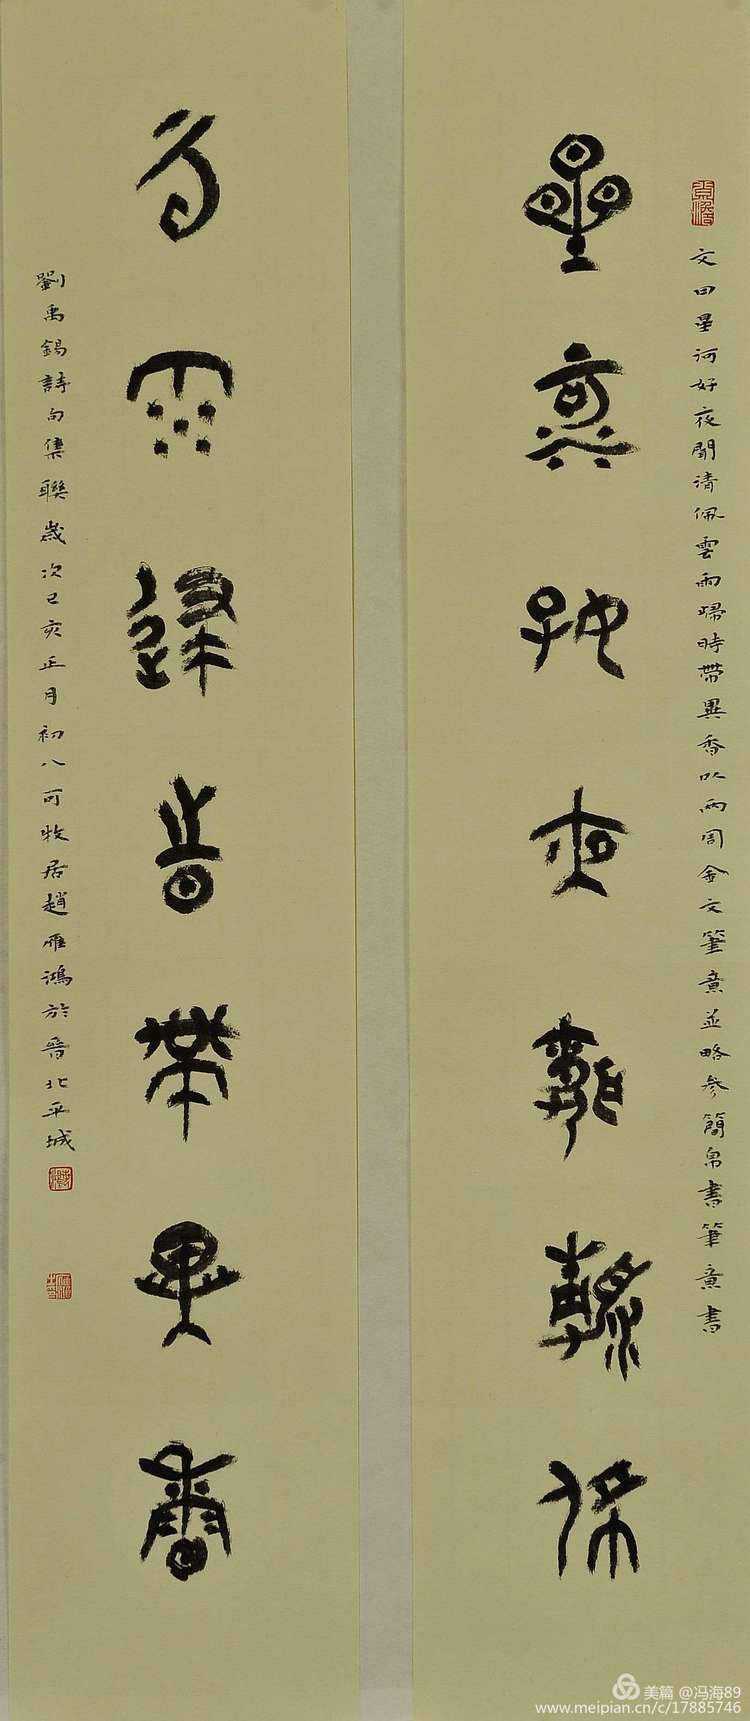 文曰星河好夜聞清佩雲雨歸時帶異香以兩周金文筆意並略參簡帛書筆意書
星河好夜聞清佩
雲雨歸時帶異香
劉禹錫詩句集聯歲次己亥正月初八可牧居趙雁鴻於晉北平城
美篇 @冯海89
www.meipian.cn/c/17885746